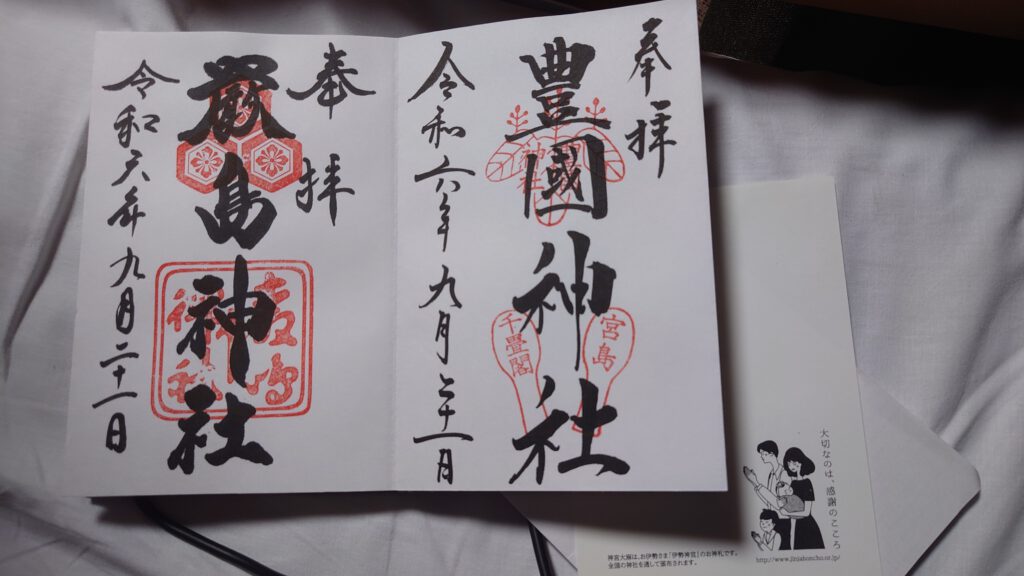 奉拝
豊國神社
宮島
千畳閣
令和六年九月二十一日
奉拝
厳島神社
令和六年九月二十一日
大切なのは、感謝のこころ
神宮大麻は、お伊勢さま「伊勢神宮」のお神札です。
全国の神社を通して頒布されます。
http://www.jinjahoncho.or.jp/